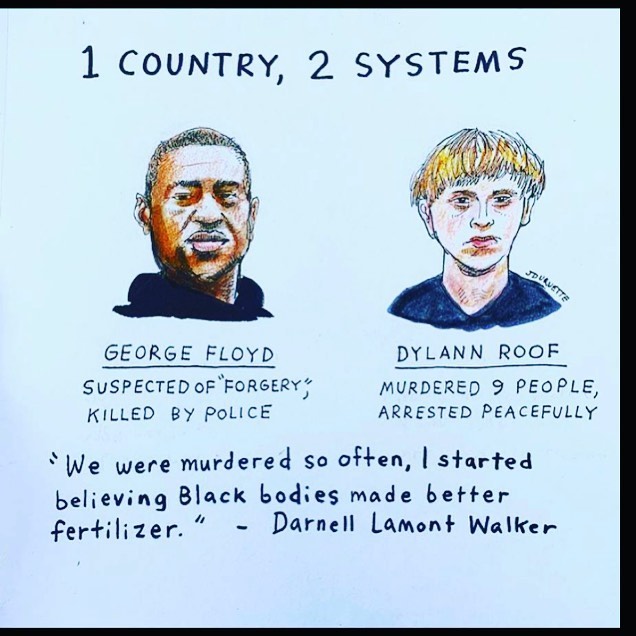 1 COUNTRY, 2 SYSTEMS
JDURUETTE
GEORGE FLOYD
SUSPECTED OF "FORGERY",
KILLED BY POLICE
DYLANN ROOF
MURDERED 9 PEOPLE,
ARRESTED PEACEFULLY
"We were murdered so often, I started
believing Black bodies made better
fertilizer." - Darnell Lamont Walker